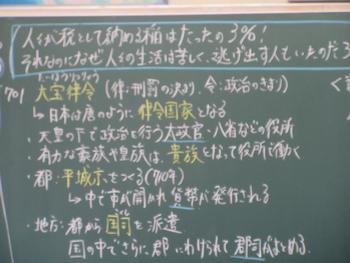 人々が税として納める稲はたったの3%!
それなのになぜ人々の生活は苦しく、逃げ出す人もいたのだろ
たいほうりつりょう
701 大宝律令 (律:刑罰の決まり、令:政治のきまり)
→日本は唐のように律令国家となる
・天皇の下で政治を行う太政官・八省などの役所
・有力な豪族や皇族は、貴族となって役所で働く
・都:平城京をつくる(710年)
→中で市が開かれ貨幣が発行される
・地方:都から国司を派遣
国の中でさらに、郡にわけられて郡司がまとめる。